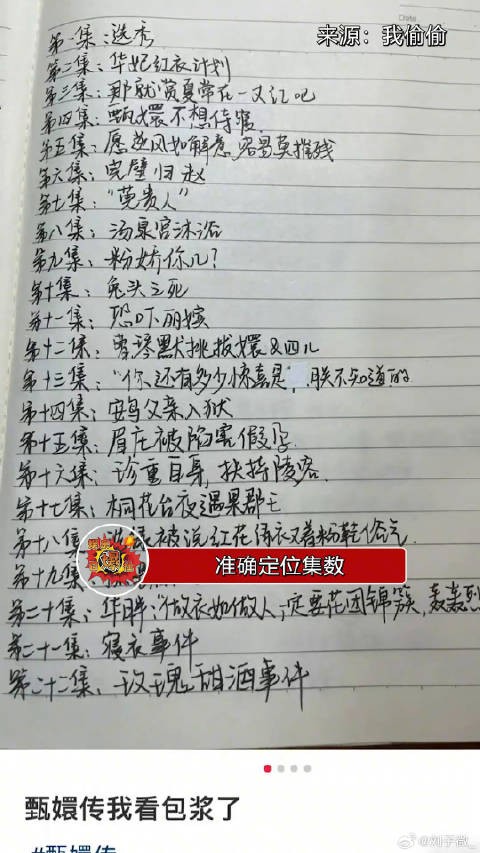 Date
来源：我偷偷
第一集：选秀
第二集：华妃红衣计划
第三集：那就赏夏常在一丈红吧
第四集：甄嬛不想侍寝
第五集：愿逆风如解意，容易莫摧残
第六集：完璧归赵
第七集："莞贵人"
第八集：汤泉宫沐浴
第九集：粉娇你几？
第十集：兔头之死
第十一集：恐吓丽嫔
第十二集：曹琴默挑拨嬛&四儿
第十三集："你还有多少惊喜是 朕不知道的
第十四集：安鸟父亲入狱
第十五集：眉庄被陷害假孕
第十六集：珍重自身，扶持陵容
第十七集：桐花台夜遇果郡王
第十八集 被浣红花 粉鞋
第十九集
准确定位集数
第二十集：华胖："做衣如做人，一定要花团锦簇，轰轰烈
第二十一集：寝衣事件
第二十二集：玫瑰甜酒事件
甄嬛传我看包浆了
#甄嬛传
@刘子微_